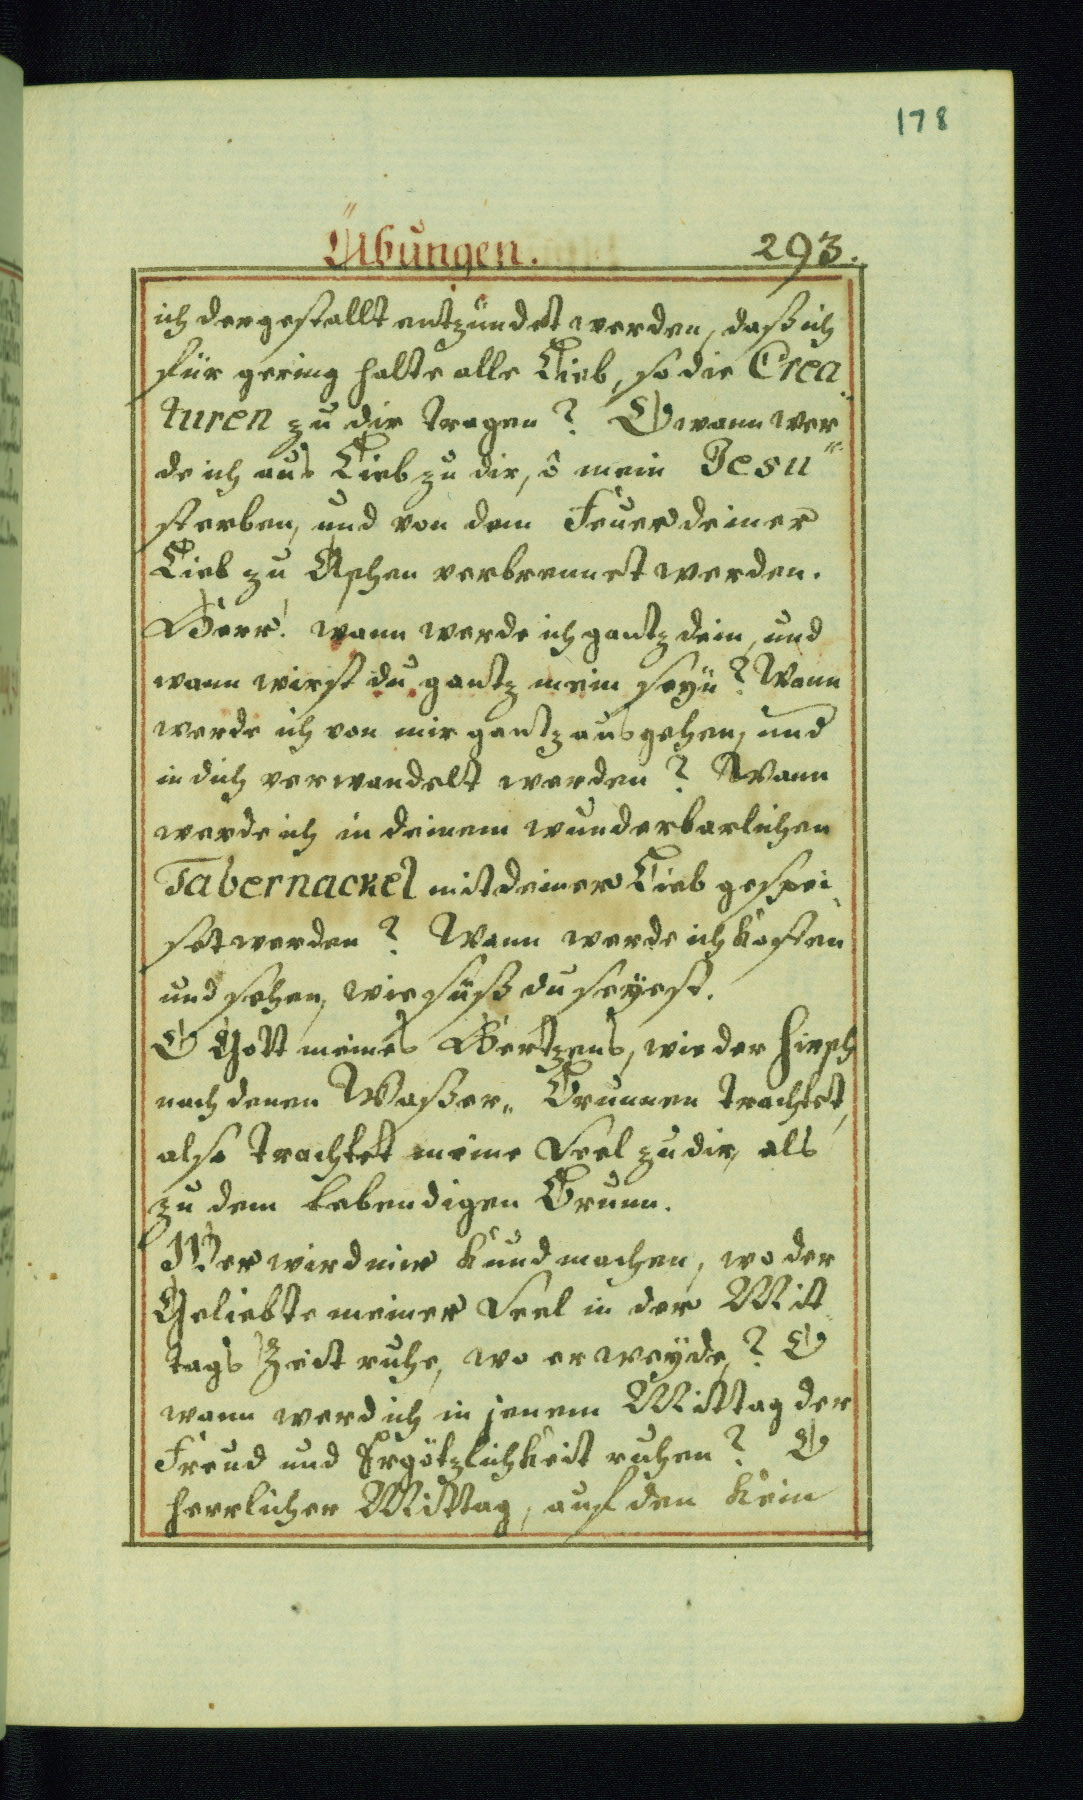 178
Übungen. 293.
ich dergestallt entzündet werden, daß ich
für gering halte alle Lieb, so die Crea„
turen zu dir tragen? O wann wer„
de ich aus Lieb zu dir, ô mein Jesu
sterben, und von dem Feuer deiner
Lieb zu Aschen verbrennet werden.
Herr! wann werde ich gantz dein, und
wann wirst du gantz mein seyn? Wann
werde ich von mir gantz ausgehen, und
in dich verwandelt werden? Wann
werde ich in deinem wunderbarlichen
Tabernackel mit deiner Lieb gespei„
set werden? Wann werde ich kosten
und sehen, wie süß du seyest.
O Gott meines Hertzens, wie der Hirsch
nach denen Waßer„ Brunnen trachtet,
also trachtet meine Seel zu dir, als
zu dem lebendigen Brunn.
Wer wird mir kund machen, wo der
Geliebte meiner Seel in der Mit
tags Zeit ruhe, wo er weyde,? O
wann werd ich in jenem Mittag der
Freud und Ergötzlichkeit ruhen? O
herrlicher Mittag, auf den kein